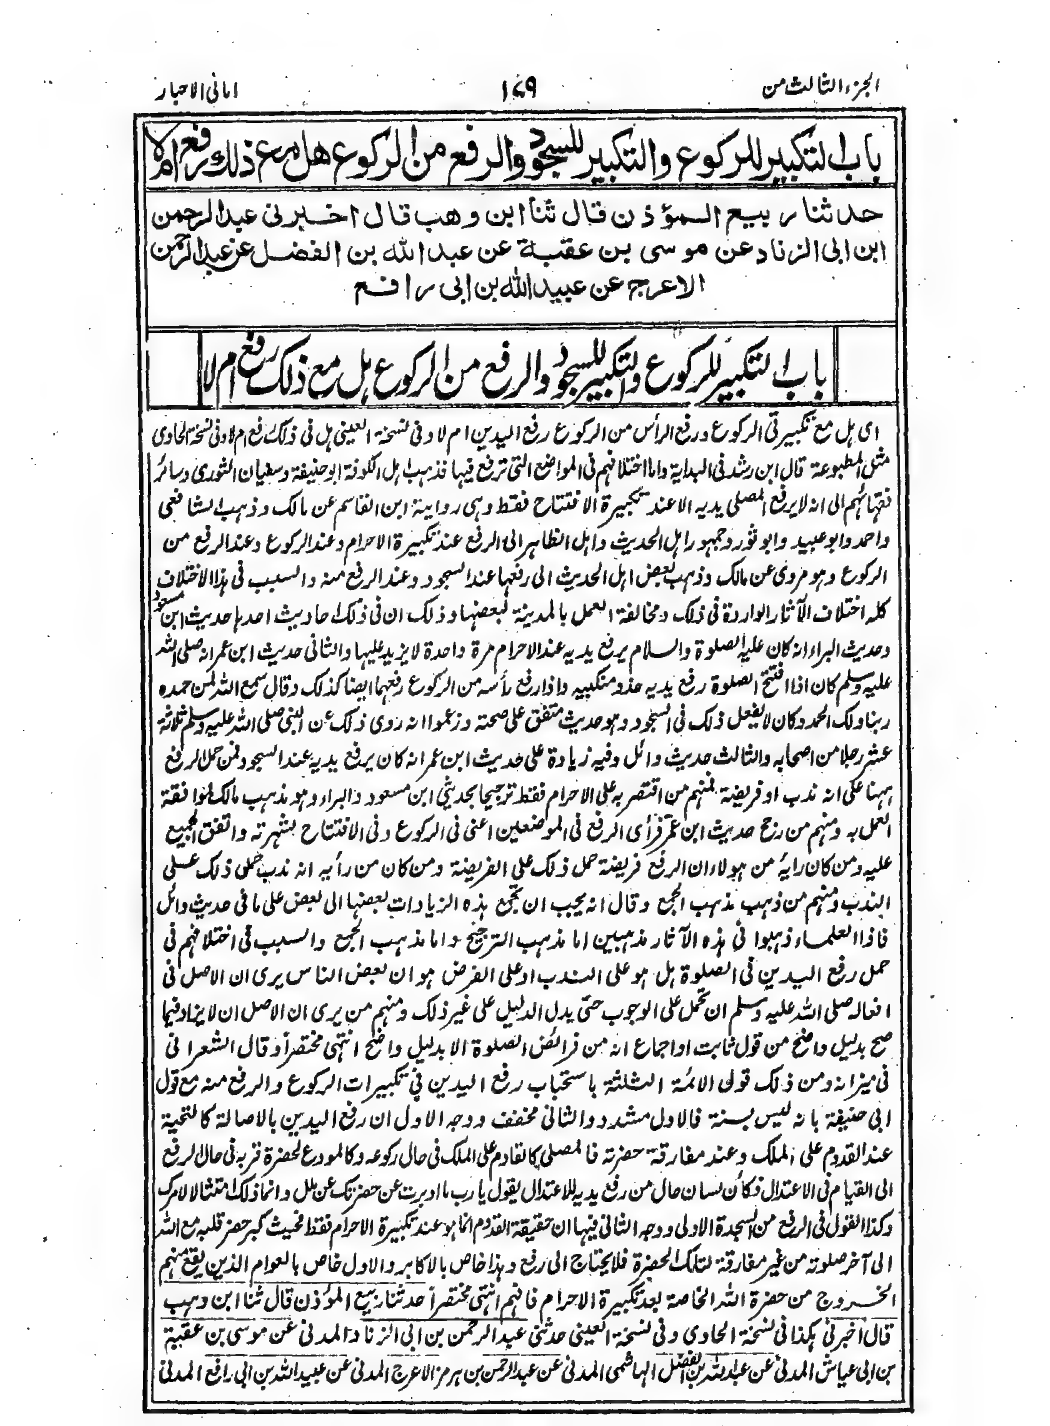 الجزء الثالث من
١٧٩
امانی الاحبار
باب التكبير للركوع والتكبير للسجود والرفع من الركوع هل مع ذلك رفع ام لا
حدثنا ربيع المؤذن قال ثنا ابن وهب قال اخبرنی عبدالرحمن
ابن ابی الزناد عن موسی بن عقبة عن عبدالله بن الفضل عن عبدالرحمن
الاعرج عن عبيدالله بن ابی رافع
باب التكبير للركوع والتكبير للسجود والرفع من الركوع ہل مع ذلک رفع ام لا
ای ہل مع تکبیرتی الرکوع ورفع الرأس من الرکوع رفع الیدین ام لا وفی نسخة العینی ہل فی ذلک رفع ام لا وفی نسخة الحاوی
مثل المطبوعة قال ابن رشد فی البدایة واما اختلافہم فی المواضع التی ترفع فیہا فذہب اہل الکوفة ابو حنیفة وسفیان الثوری وسائر
فقہائہم الی انہ لا یرفع المصلی یدیہ الا عند تکبیرة الافتتاح فقط وہی روایة ابن القاسم عن مالک وذہب الشافعی
واحمد وابو عبید وابو ثور وجمہور اہل الحدیث واہل الظاہر الی الرفع عند تکبیرة الاحرام وعند الرکوع وعند الرفع من
الرکوع وہو مروی عن مالک وذہب بعض اہل الحدیث الی رفعہا عند السجود وعند الرفع منہ والسبب فی ہذا الاختلاف
کلہ اختلاف الآثار الواردة فی ذلک ومخالفة العمل بالمدینة لبعضہا وذلک ان فی ذلک احادیث احدہا حدیث ابن مسعود
وحدیث البراء انہ کان علیہ الصلوة والسلام یرفع یدیہ عند الاحرام مرة واحدة لا یزید علیہا والثانی حدیث ابن عمر انہ صلی اللہ
علیہ وسلم کان اذا افتتح الصلوة رفع یدیہ حذو منکبیہ واذا رفع رأسہ من الرکوع رفعہما ایضا کذلک وقال سمع اللہ لمن حمدہ
ربنا ولک الحمد وکان لا یفعل ذلک فی السجود وہو حدیث متفق علی صحتہ وزعموا انہ روی ذلک عن النبی صلی اللہ علیہ وسلم ثلاثة
عشر رجلا من اصحابہ والثالث حدیث وائل وفیہ زیادة علی حدیث ابن عمر انہ کان یرفع یدیہ عند السجود فمن حمل الرفع
ہہنا علی انہ ندب او فریضة فمنہم من اقتصر بہ علی الاحرام فقط ترجیحا لحدیثی ابن مسعود والبراء وہو مذہب مالک لموافقة
العمل بہ ومنہم من رجح حدیث ابن عمر فرأی الرفع فی الموضعین اعنی فی الرکوع وفی الافتتاح بشہرتہ واتفق الجمیع
علیہ ومن کان رایہ من ہولاء ان الرفع فریضة حمل ذلک علی الفریضة ومن کان من رأیہ انہ ندب حمل ذلک علی
الندب ومنہم من ذہب مذہب الجمع وقال انہ یجب ان تجمع ہذہ الزیادات بعضہا الی بعض علی ما فی حدیث وائل
فاذا العلماء ذہبوا فی ہذہ الآثار مذہبین اما مذہب الترجیح واما مذہب الجمع والسبب فی اختلافہم فی
حمل رفع الیدین فی الصلوة ہل ہو علی الندب او علی الفرض ہو ان بعض الناس یری ان الاصل فی
افعالہ صلی اللہ علیہ وسلم ان تحمل علی الوجوب حتی یدل الدلیل علی غیر ذلک ومنہم من یری ان الاصل ان لا یزاد فیما
صح بدلیل واضح من قول ثابت او اجماع انہ من فرائض الصلوة الا بدلیل واضح انتہی مختصرا وقال الشعرانی
فی میزانہ ومن ذلک قول الائمة الثلثة باستحباب رفع الیدین فی تکبیرات الرکوع والرفع منہ مع قول
ابی حنیفة بانہ لیس بسنة فالاول مشدد والثانی مخفف ووجہ الاول ان رفع الیدین بالاصالة کالتحیة
عند القدوم علی الملک وعند مفارقة حضرتہ فالمصلی کالقادم علی الملک فی حال رکوعہ وکالمودع لحضرة قربہ فی حال الرفع
الی القیام فی الاعتدال فکأن لسان حال من رفع یدیہ للاعتدال یقول یا رب ما ادبرت عن حضرتک عن ملل وانما ذلک امتثالا لامرک
وکذا القول فی الرفع من السجدة الاولی ووجہ الثانی فیہا ان حقیقة القدوم انما ہو عند تکبیرة الاحرام فقط فحیث کبر حضر قلبہ مع اللہ
الی آخر صلوتہ من غیر مفارقة لتلک الحضرة فلا یحتاج الی رفع وہذا خاص بالاکابر والاول خاص بالعوام الذین یقع منہم
الخروج من حضرة اللہ الخاصة بعد تکبیرة الاحرام فافہم انتہی مختصرا حدثنا ربیع المؤذن قال ثنا ابن وہب
قال اخبرنی ہکذا فی نسخة الحاوی وفی نسخة العینی حدثنی عبدالرحمن بن ابی الزناد المدنی عن موسی بن عقبة
بن ابی عیاش المدنی عن عبداللہ بن الفضل الہاشمی المدنی عن عبدالرحمن بن ہرمز الاعرج المدنی عن عبیداللہ بن ابی رافع المدنی